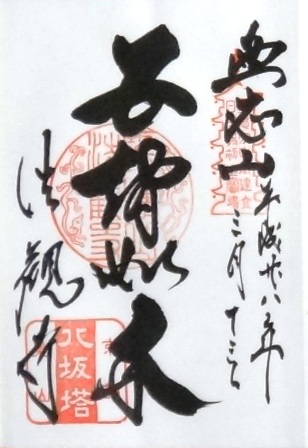 霊応山 平成廿八年三月十三日
五智如来
法観寺
八坂塔